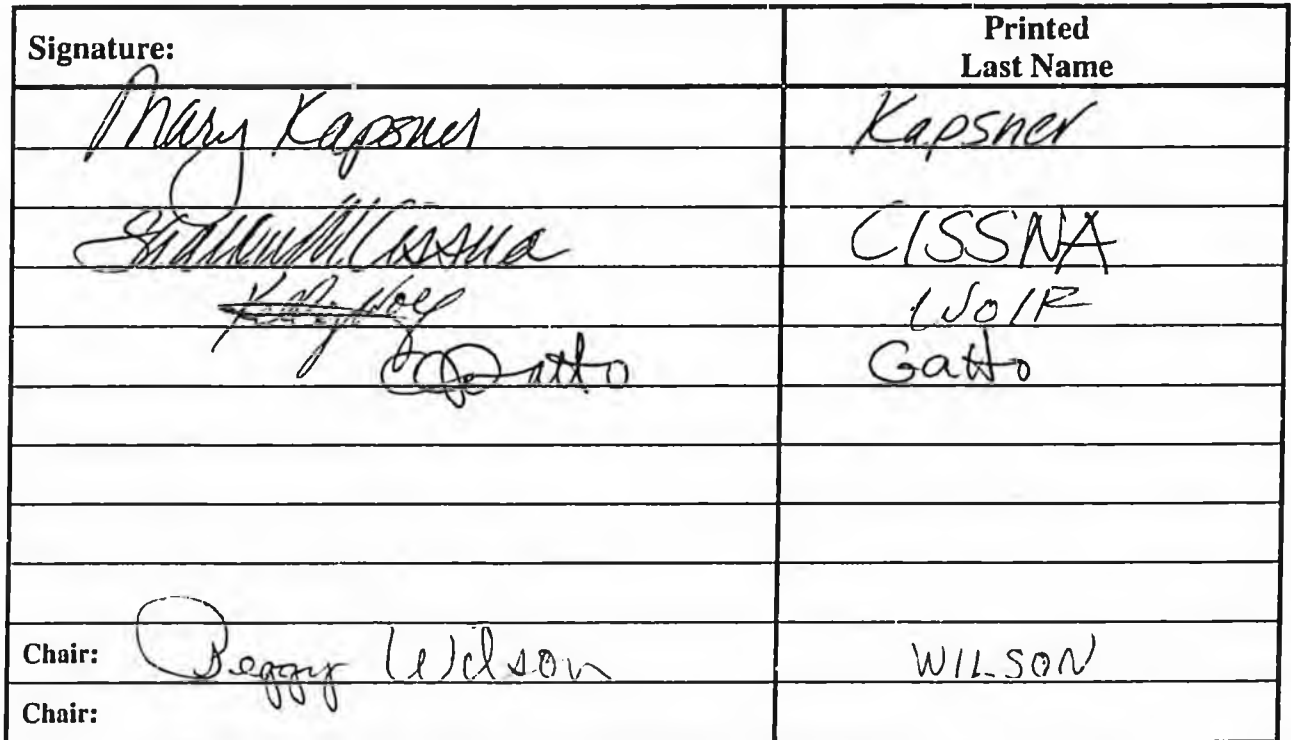 Signature: Printed Last Name
Mary Kapsner Kapsner
Sharon M. Cissna CISSNA
Kelly Wolf Wolf
Gatto Gatto
Chair: Peggy Wilson WILSON
Chair: